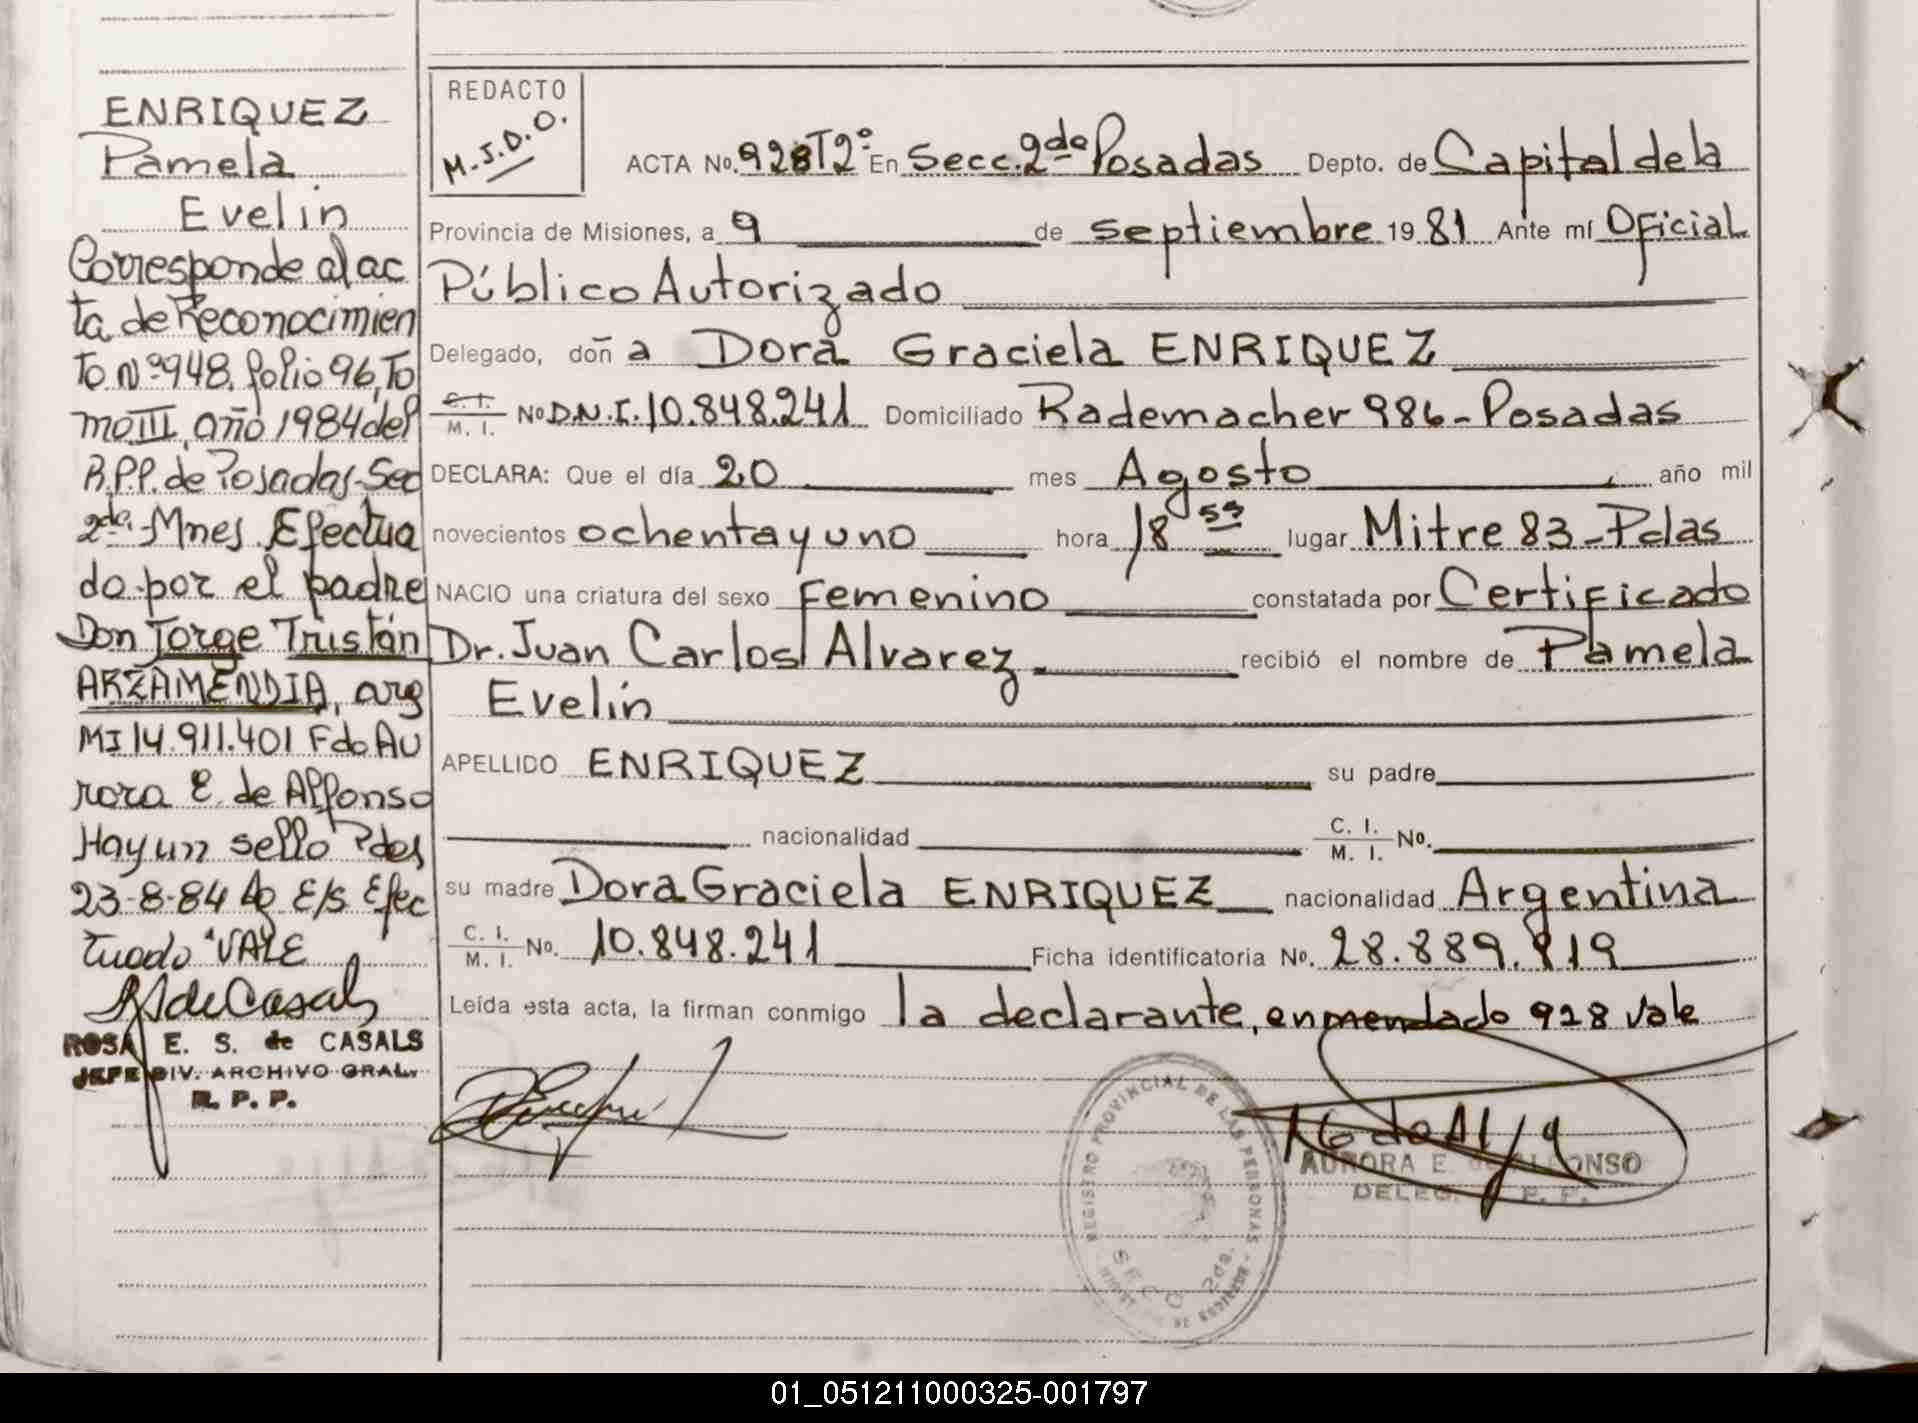 ENRIQUEZ
Pamela
Evelin
Corresponde al ac
ta de Reconocimien
to Nº 948, folio 96, To
mo III, año 1984 del
R.P.P. de Posadas-Sec
2da.-Mnes. Efectua
do por el padre
Don Jorge Tristán
ARZAMENDIA, arg
MI 14.911.401 Fdo Au
rora E. de Alfonso
Hay un sello Pdas
23-8-84 E/S Efec
tuado "VALE
ROSA E. S. de CASALS
JEFE DIV. ARCHIVO GRAL.
R. P. P.
REDACTO
M.J.D.O.
ACTA No. 928 T2º En Secc. 2da Posadas Depto. de Capital de la
Provincia de Misiones, a 9 de septiembre 19 81 Ante mí Oficial
Público Autorizado
Delegado, doña Dora Graciela ENRIQUEZ
C. I.
M. I. No D.N.I. 10.848.241 Domiciliado Rademacher 986-Posadas
DECLARA: Que el día 20 mes Agosto, año mil
novecientos ochenta y uno hora 18 55 lugar Mitre 83-Pdas
NACIO una criatura del sexo Femenino constatada por Certificado
Dr. Juan Carlos Alvarez recibió el nombre de Pamela
Evelin
APELLIDO ENRIQUEZ su padre
nacionalidad C. I.
M. I. No.
su madre Dora Graciela ENRIQUEZ nacionalidad Argentina
C. I.
M. I. No. 10.848.241 Ficha identificatoria No. 28.889.819
Leída esta acta, la firman conmigo la declarante, enmendado 928 vale
REGISTRO PROVINCIAL DE LAS PERSONAS
SECC. 2da.
AURORA E. de ALFONSO
DELEG. R. P. P.
01_051211000325-001797